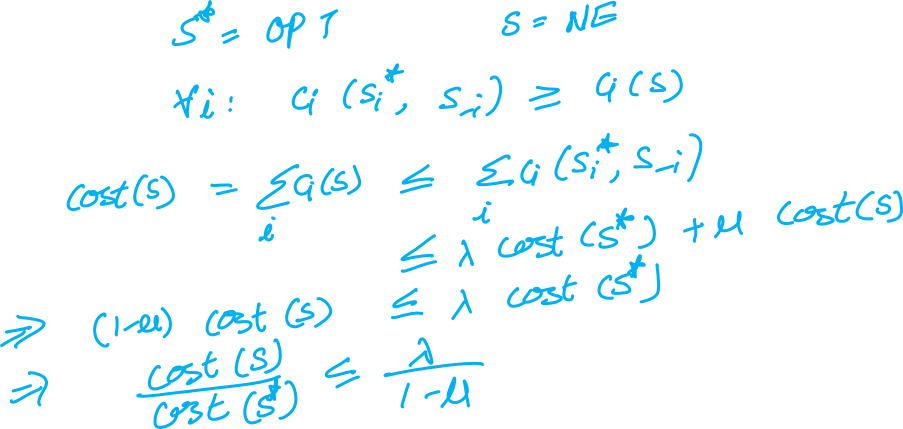 S* = OPT S = NE
∀i: Cᵢ (Sᵢ*, S₋ᵢ) ≥ Cᵢ(S)
cost(S) = ∑ᵢ Cᵢ(S) ≤ ∑ᵢ Cᵢ (Sᵢ*, S₋ᵢ)
≤ λ cost (S*) + μ cost(S)
⇒ (1-μ) cost (S) ≤ λ cost (S*)
⇒ cost (S) / cost (S*) ≤ λ / 1-μ